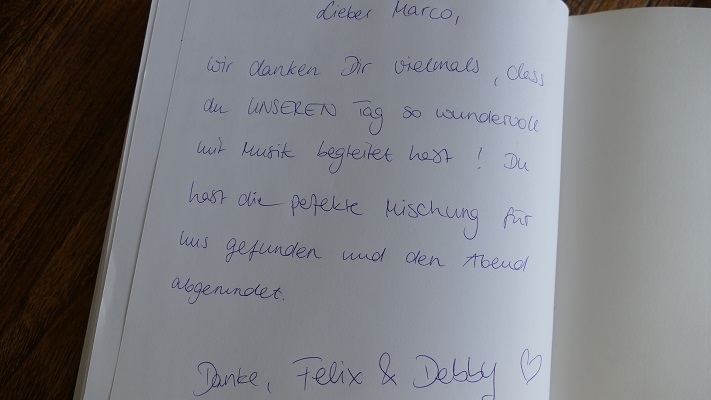 Lieber Marco,
wir danken Dir vielmals, dass
du UNSEREN Tag so wundervoll
mit Musik begleitet hast! Du
hast die pefekte Mischung für
uns gefunden und den Abend
abgerundet.
Danke, Felix & Debby ♡